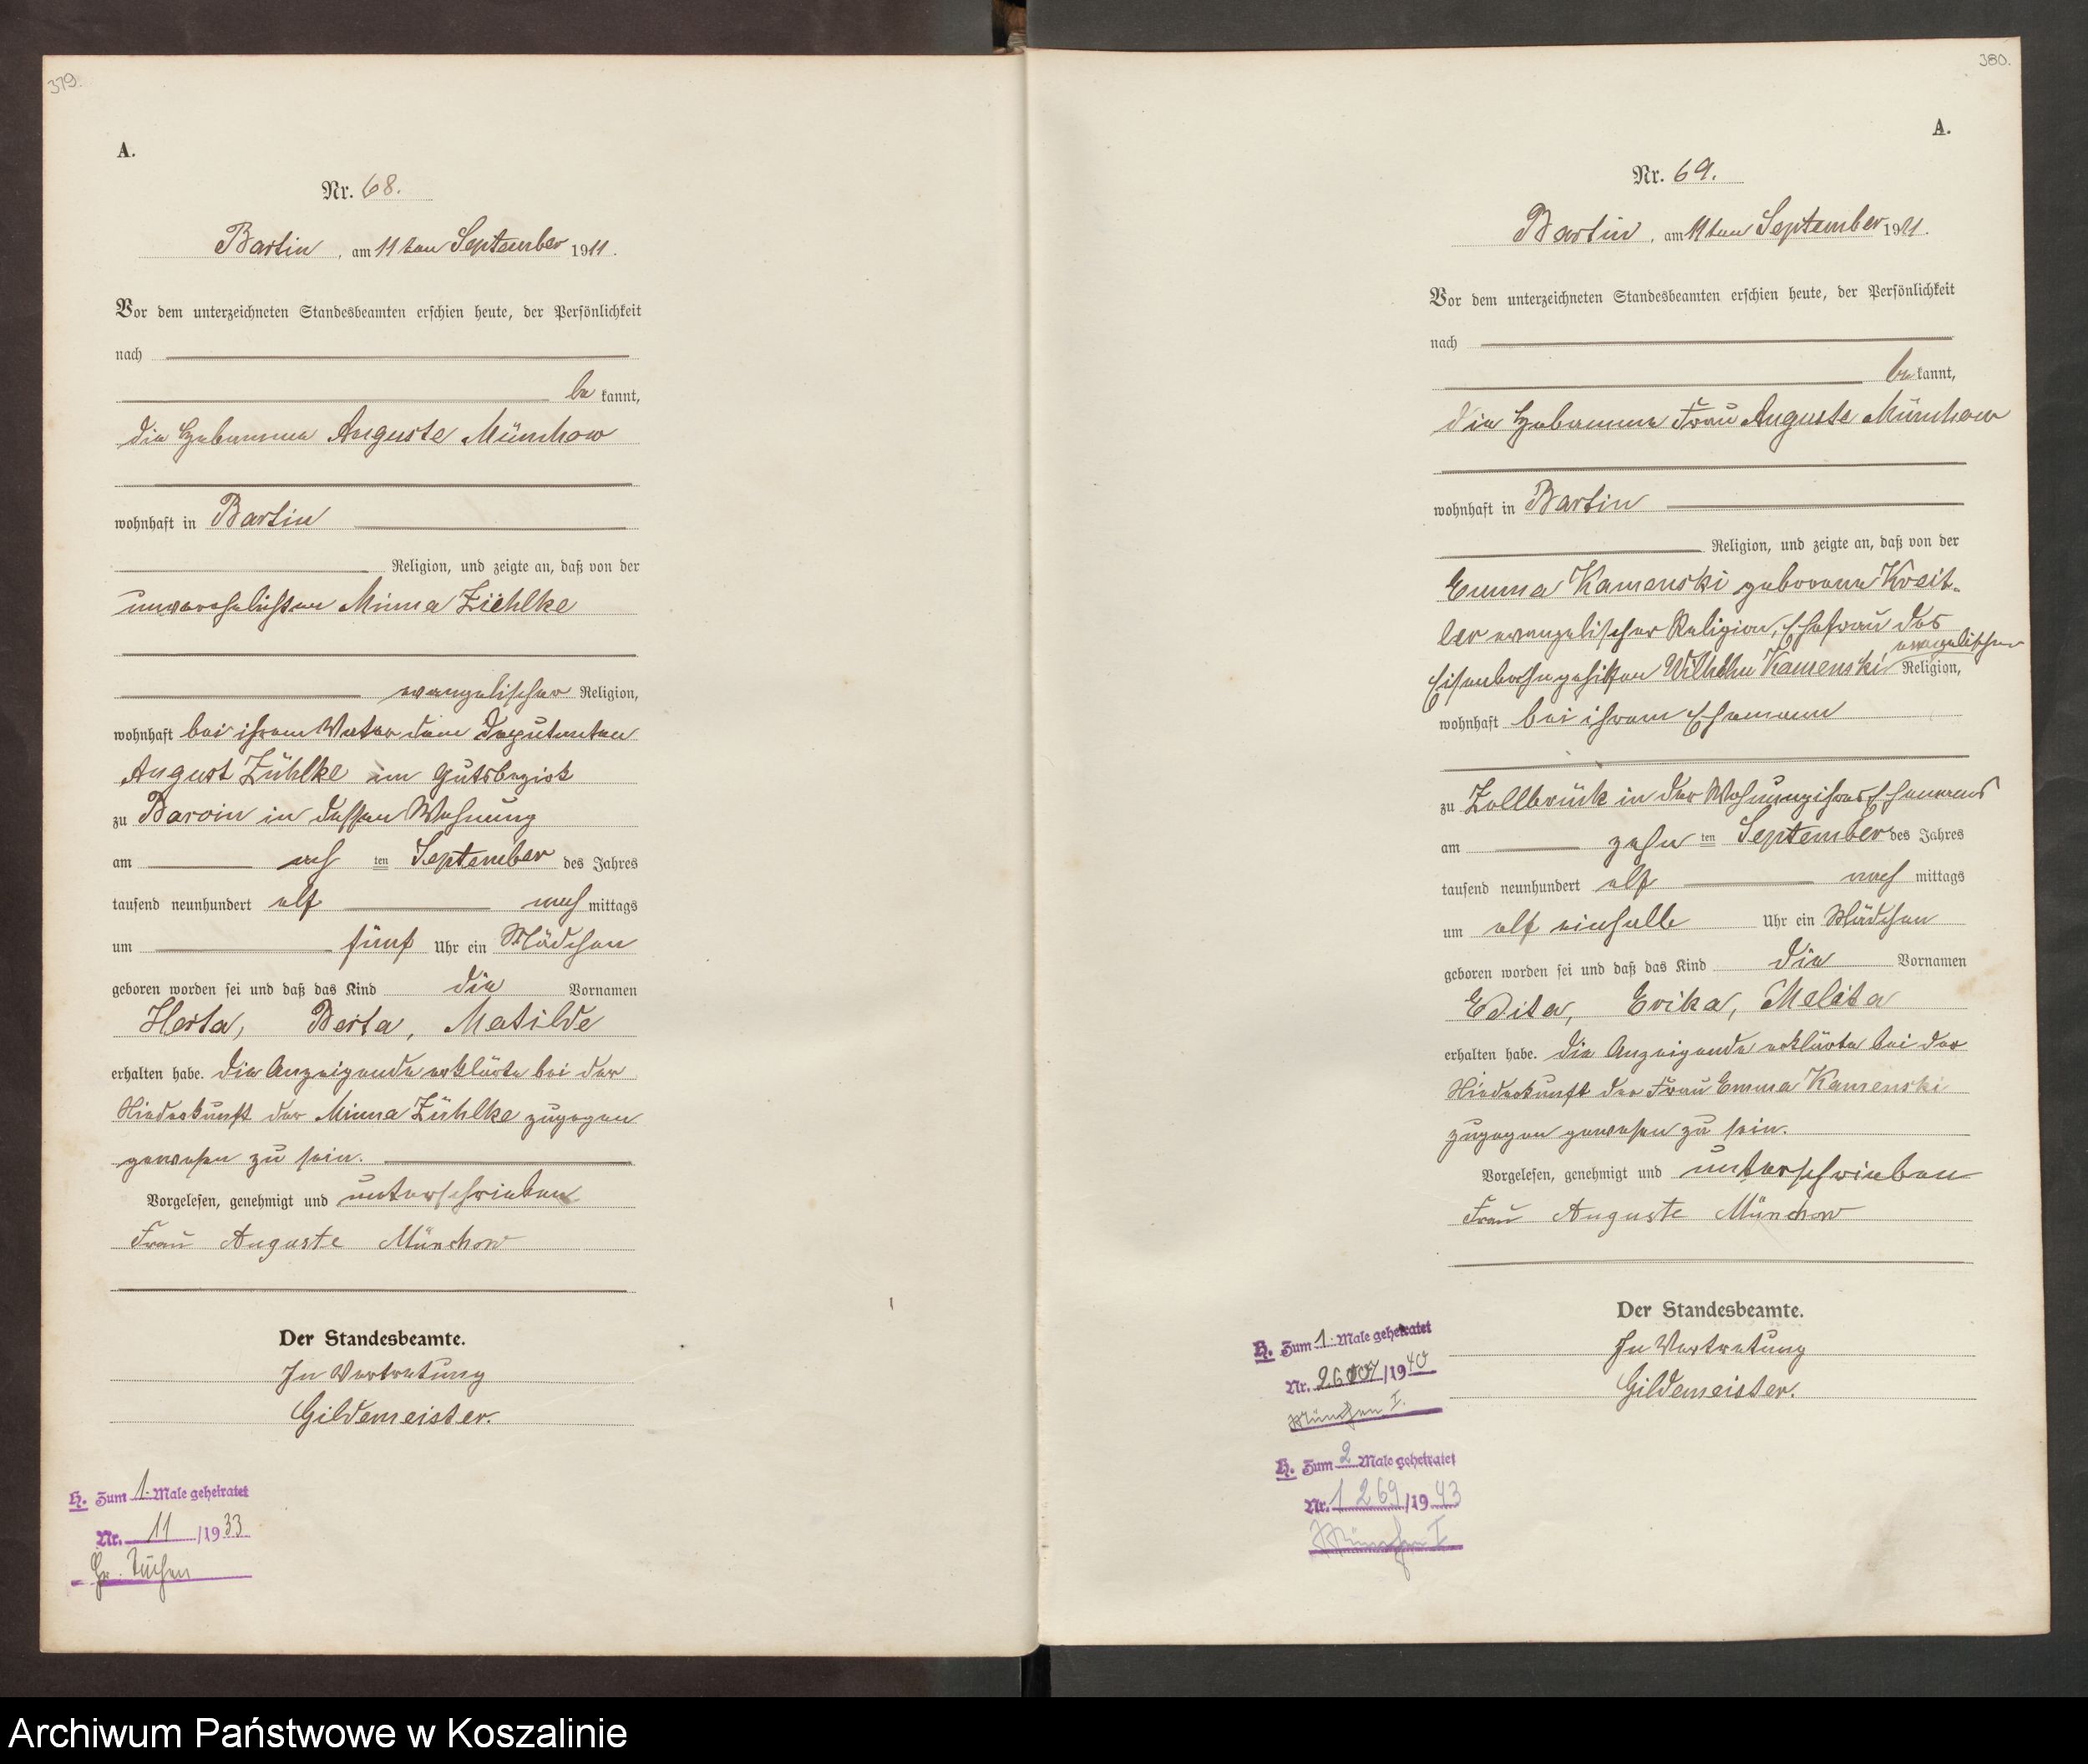 379.
A.
Nr. 68.
Bartin, am 11ten September 1911.
Vor dem unterzeichneten Standesbeamten erschien heute, der Persönlichkeit
nach
be kannt,
die Hebamme Auguste Münchow
wohnhaft in Bartin
Religion, und zeigte an, daß von der
unverehelichten Minna Ziehlke
evangelischer Religion,
wohnhaft bei ihrem Vater dem Deputanten
August Zühlke im Gutsbezirk
zu Barvin in dessen Wohnung
am ten September des Jahres
tausend neunhundert elf nach mittags
um fünf Uhr ein Mädchen
geboren worden sei und daß das Kind die Vornamen
Herta, Berta, Matilde
erhalten habe. Die Anzeigende erklärte bei der
Niederkunft der Minna Zühlke zugegen
gewesen zu sein.
Vorgelesen, genehmigt und unterschrieben
Frau Auguste Münchow
Der Standesbeamte.
In Vertretung
Gildemeister.
H. Zum 1. Male geheiratet
Nr. 11 /1933
Gr. Tuchen
380.
A.
Nr. 69.
Bartin, am 11ten September 1911.
Vor dem unterzeichneten Standesbeamten erschien heute, der Persönlichkeit
nach
be kannt,
die Hebamme Frau Auguste Münchow
wohnhaft in Bartin
Religion, und zeigte an, daß von der
Emma Kamenski geborene Kreit-
ler evangelischer Religion, Ehefrau des
evangelischer
Eisenbahngehilfen Wilhelm Kamenski Religion,
wohnhaft bei ihrem Ehemann
zu Zollbrück in der Wohnung ihres Ehemannes
am zehn ten September des Jahres
tausend neunhundert elf nach mittags
um elf einhalb Uhr ein Mädchen
geboren worden sei und daß das Kind die Vornamen
Edita, Erika, Melita
erhalten habe. Die Anzeigende erklärte bei der
Niederkunft der Frau Emma Kamenski
zugegen gewesen zu sein.
Vorgelesen, genehmigt und unterschrieben
Frau Auguste Münchow
Der Standesbeamte.
In Vertretung
Gildemeister.
H. Zum 1. Male geheiratet
Nr. /1940
München I.
H. Zum 2 Male geheiratet
Nr. 1269/1943
München I
Archiwum Państwowe w Koszalinie